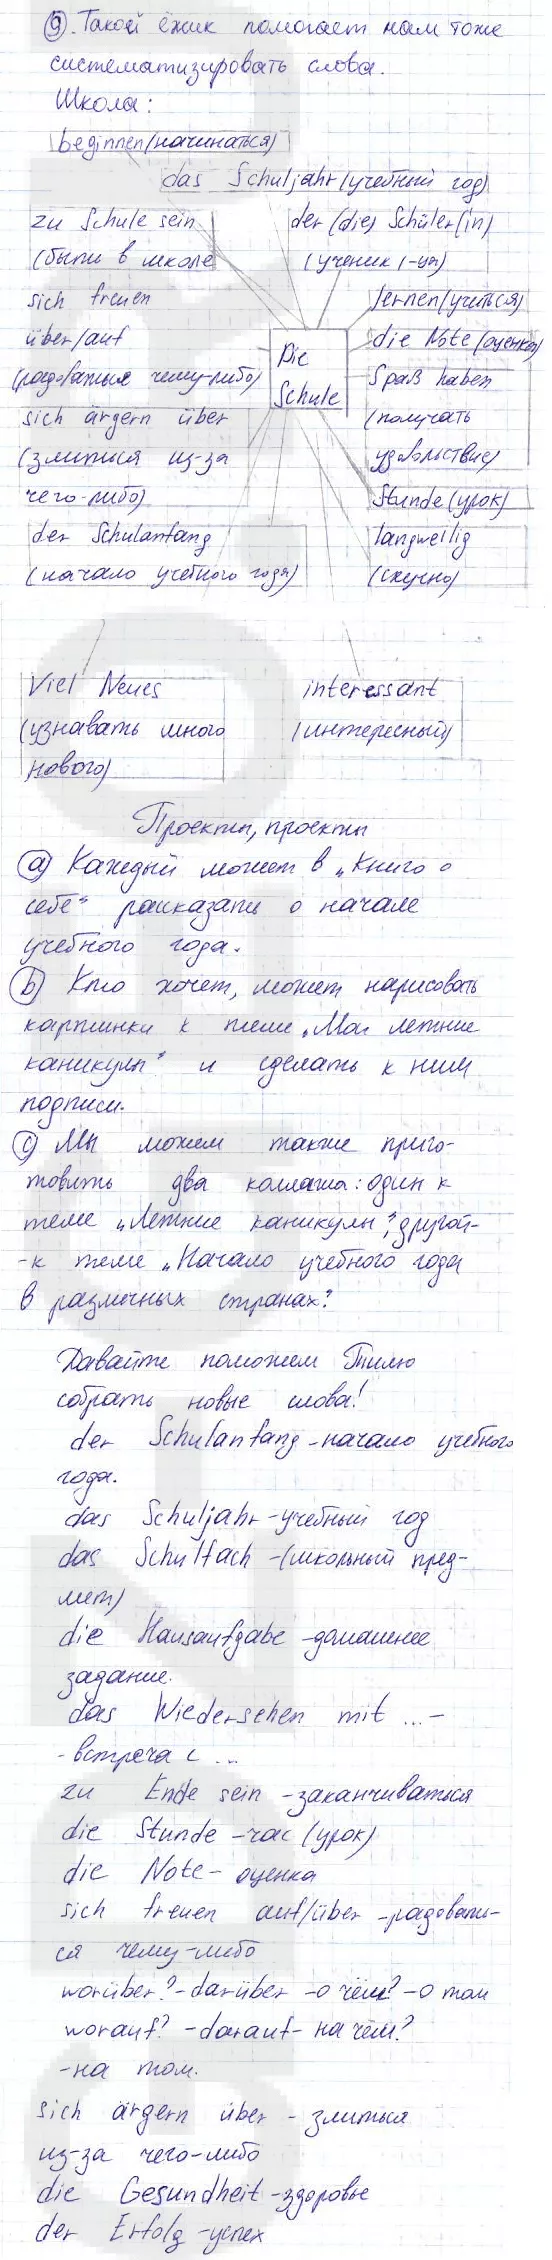 9. Такой ёжик помогает нам тоже
систематизировать слова.
Школа:
beginnen (начинаться)
das Schuljahr (учебный год)
zu Schule sein
(быть в школе
der (die) Schüler(in)
(ученик (-ца)
sich freuen
über/auf
(радоваться чему-либо)
sich ärgern über
(злиться из-за
чего-либо)
der Schulanfang
(начало учебного года)
Die
Schule
lernen (учиться)
die Note (оценка)
Spaß haben
(получать
удовольствие)
Stunde (урок)
langweilig
(скучно)
Viel Neues
(узнавать много
нового)
interessant
(интересный)
Проекты, проекты
a) Каждый может в „Книге о
себе“ рассказать о начале
учебного года.
b) Кто хочет, может нарисовать
картинки к теме „Мои летние
каникулы“ и сделать к ним
подписи.
c) Мы можем также приго-
товить два коллажа: один к
теме „Летние каникулы“, другой-
-к теме „Начало учебного года
в различных странах“.
Давайте поможем Тилю
собрать новые слова!
der Schulanfang - начало учебного
года.
das Schuljahr - учебный год
das Schulfach - (школьный пред-
мет)
die Hausaufgabe - домашнее
задание.
das Wiedersehen mit ... -
- встреча с ...
zu Ende sein - заканчиваться
die Stunde - час (урок)
die Note - оценка
sich freuen auf/über - радовать-
ся чему-либо
worüber? - darüber - о чём? - о том
worauf? - darauf - на чём?
- на том.
sich ärgern über - злиться
из-за чего-либо
die Gesundheit - здоровье
der Erfolg - успех